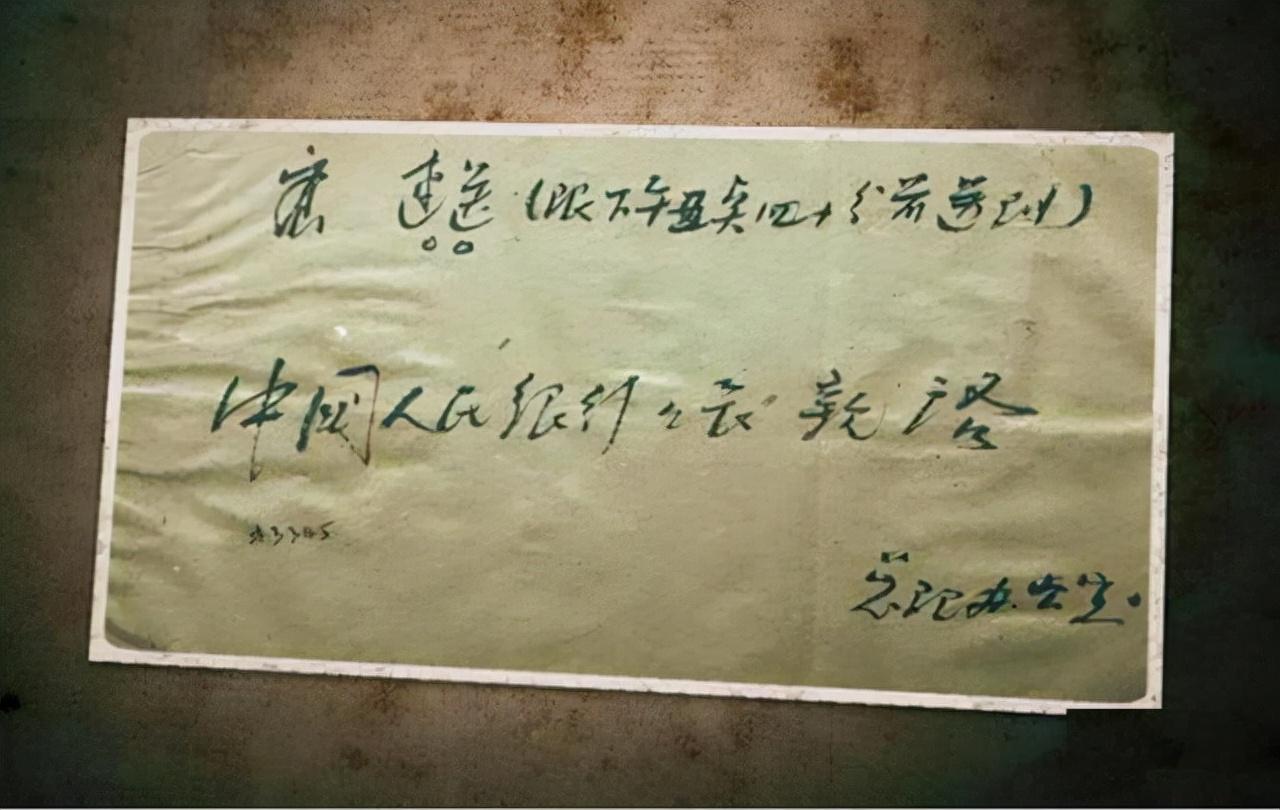 速送（限下午五点四十分前送到）
中国人民银行々长 亲启
总理办公室